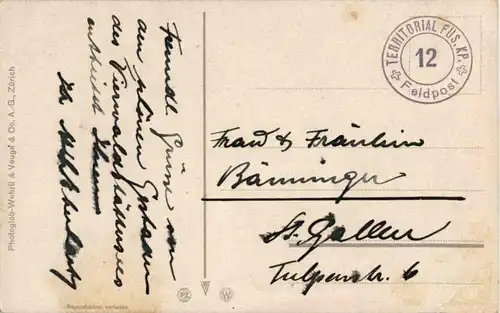 Freundl. Grüsse von
am grünen Gestade
des Vierwaldstättersees
entbietet Ihnen
Ihr
TERRITORIAL FÜS. KP.
12
Feldpost
Frau & Fräulein
Bänninger
St. Gallen
Tulpenstr. 6
Photoglob-Wehrli & Vouga & Co., A.-G., Zürich
Reproduktion verboten.
PZ
W